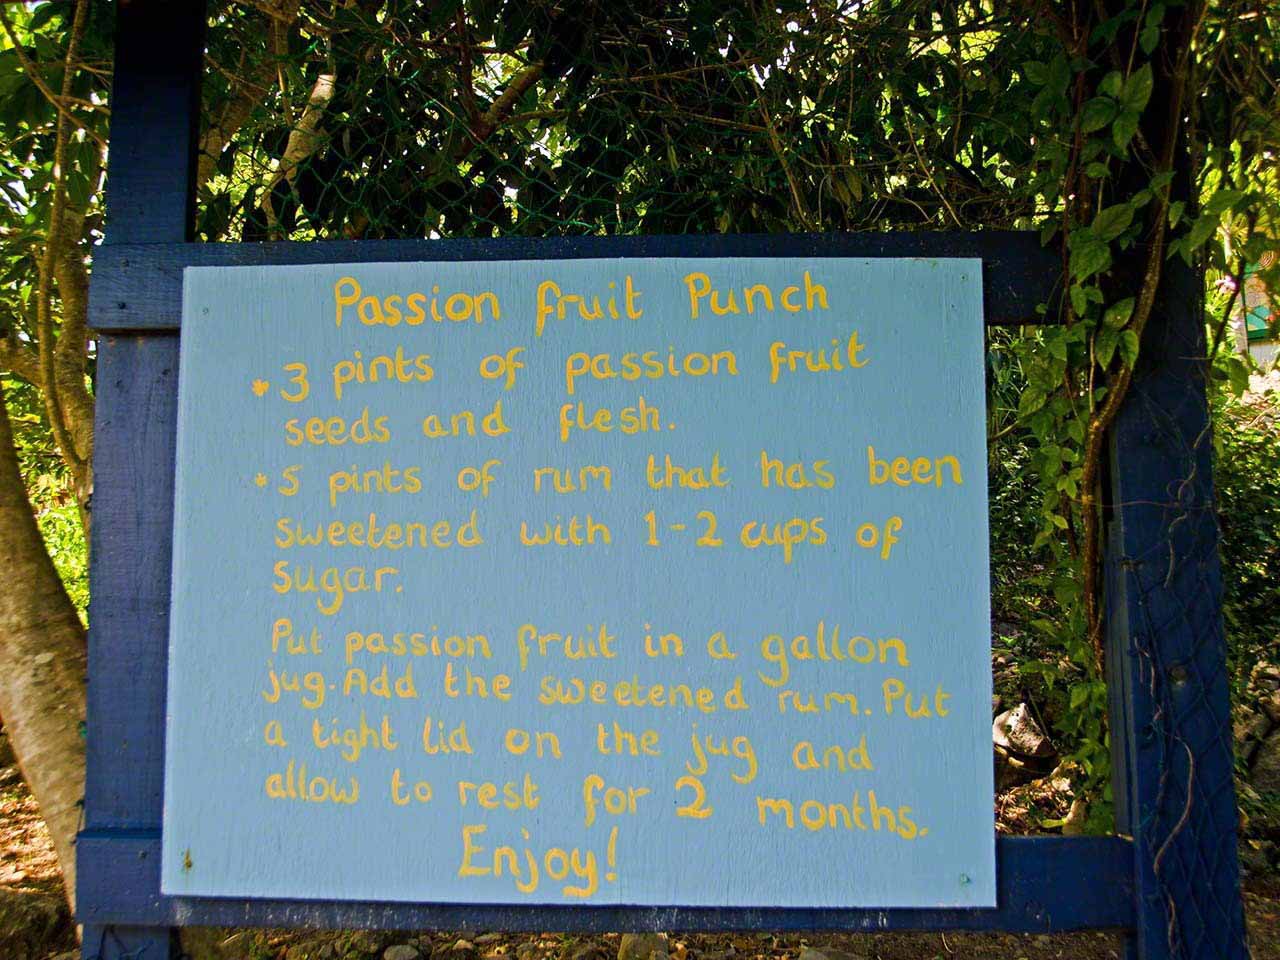 Passion fruit Punch
* 3 pints of passion fruit
seeds and flesh.
* 5 pints of rum that has been
sweetened with 1-2 cups of
sugar.
Put passion fruit in a gallon
jug. Add the sweetened rum. Put
a tight lid on the jug and
allow to rest for 2 months.
Enjoy!